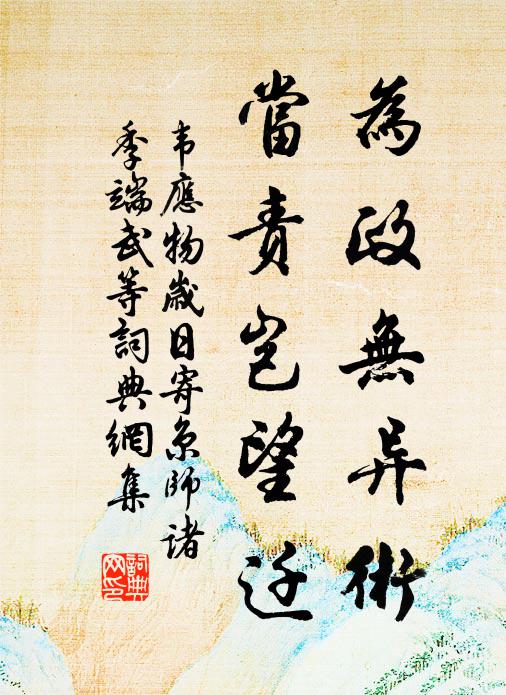 為政無异術
當責豈望迁
韦應物歲日寄京師諸
季端武等詞典網集
詞典
网印